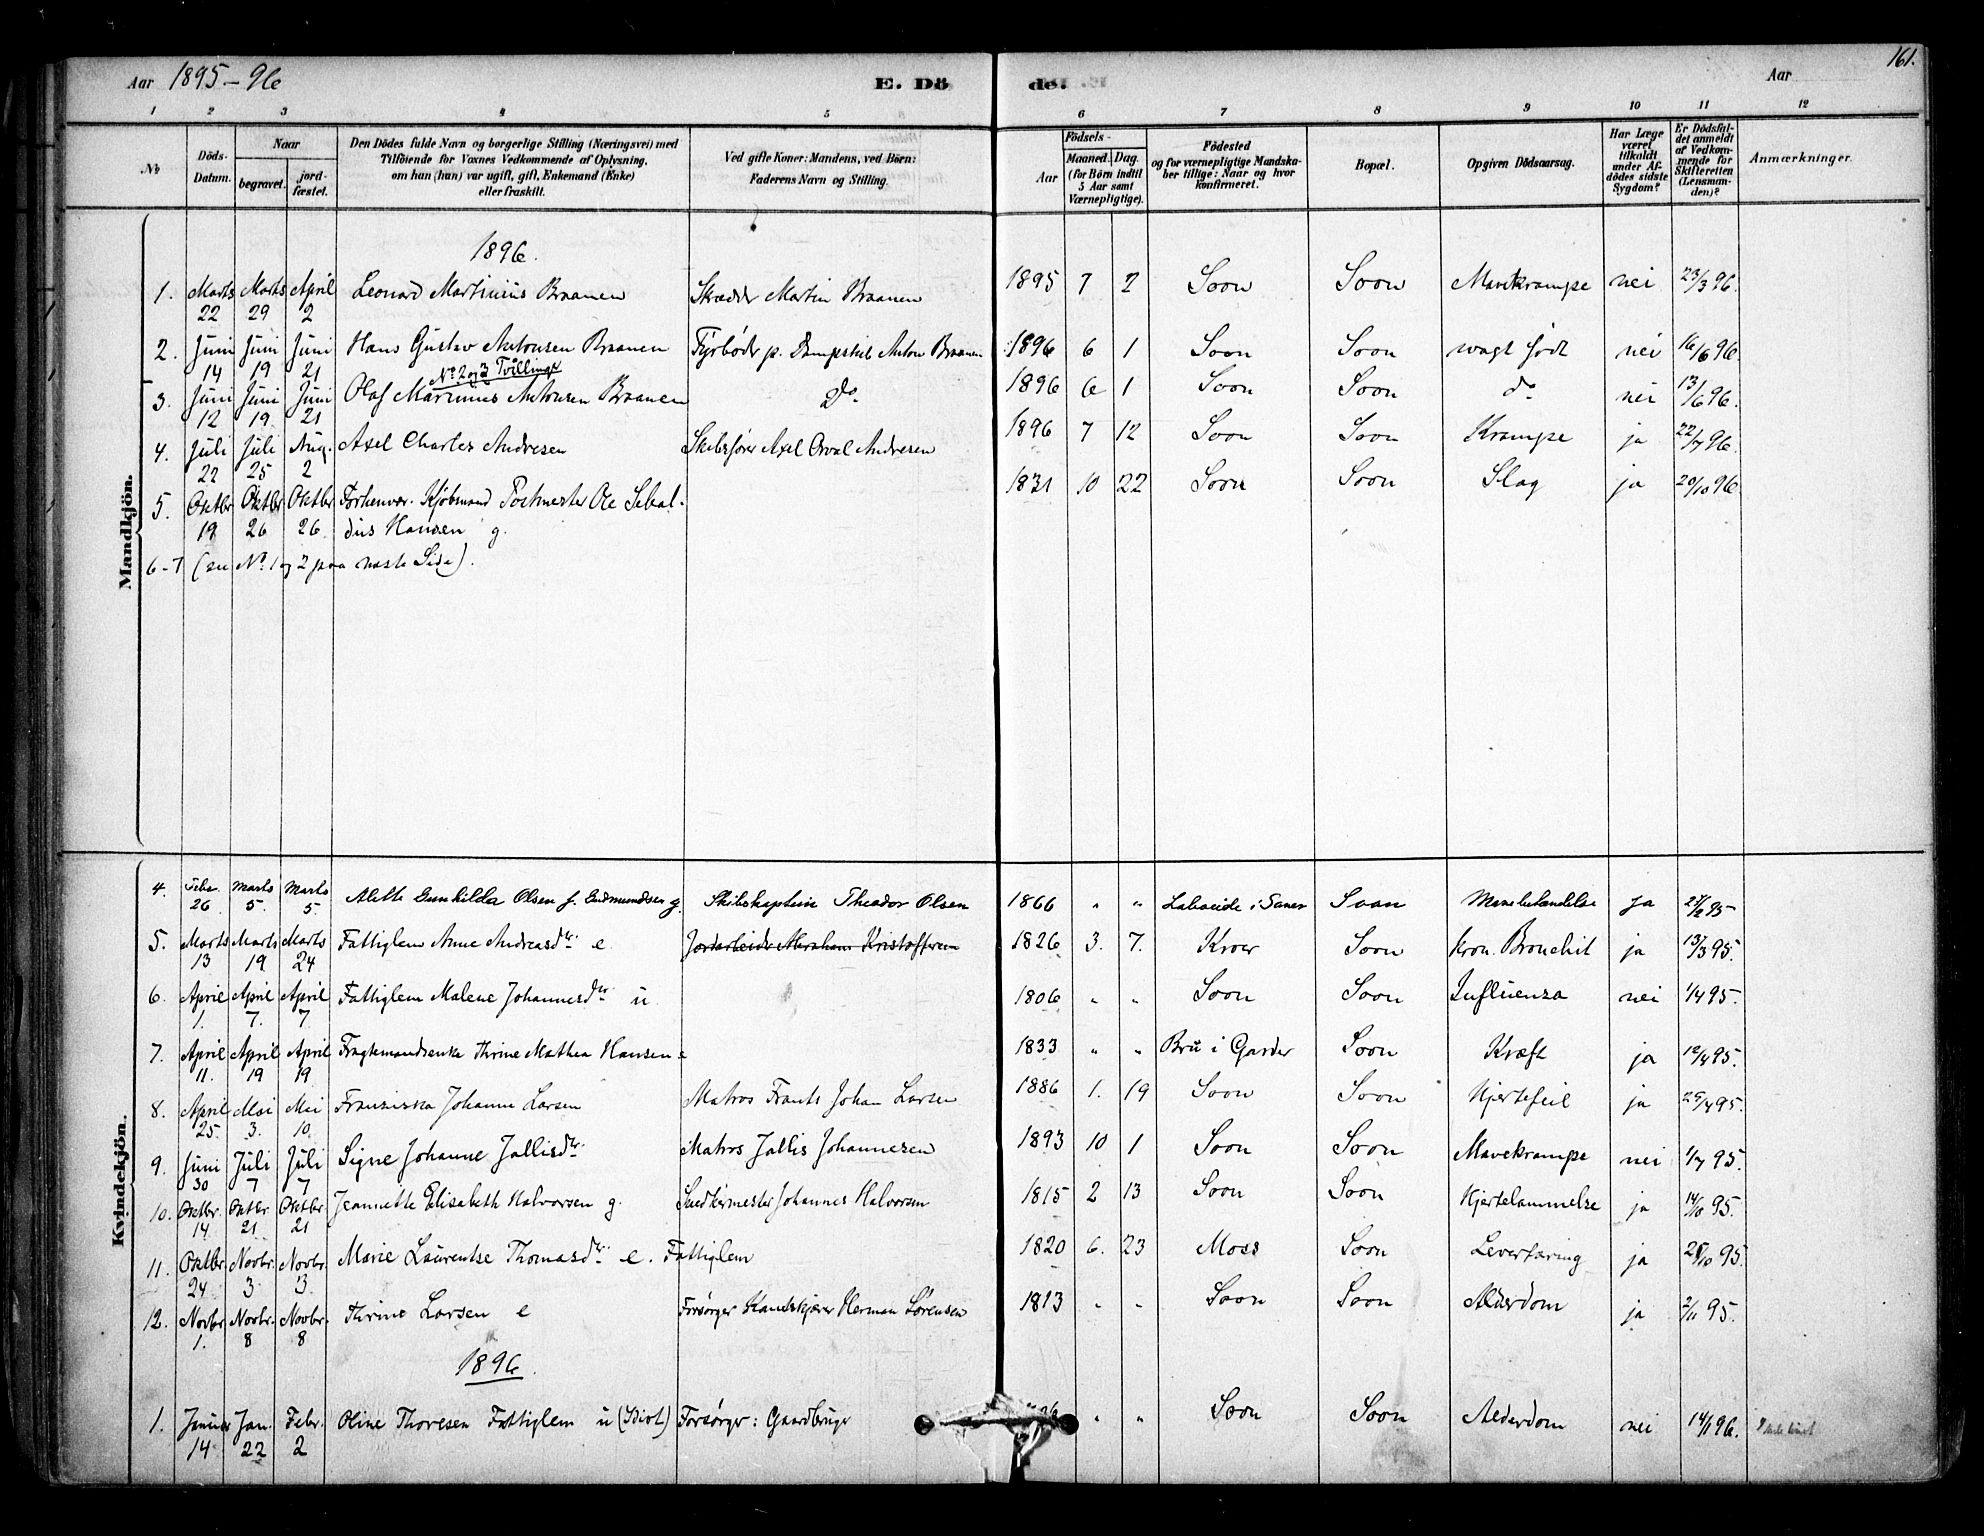 Aar 1895-96 E. Dö de. Aar 161.
1 2 3 4 5 6 7 8 9 10 11 12
No Döds-Datum. Naar begravet. jord-fæstet. Den Dödes fulde Navn og borgerlige Stilling (Næringsvei) med Tilföiende for Voxnes Vedkommende af Oplysning, om han (hun) var ugift, gift, Enkemand (Enke) eller fraskilt. Ved gifte Koner: Mandens, ved Börn: Faderens Navn og Stilling. Födsels- Aar Maaned. Dag. (for Börn indtil 5 Aar samt Værnepligtige). Födested og for værnepligtige Mandska-ber tillige: Naar og hvor konfirmeret. Bopæl. Opgiven Dödsaarsag. Har Læge været tilkaldt under Af-dödes sidste Sygdom? Er Dödsfal-det anmeldt af Vedkom-mende for Skifteretten (Lensman-den)? Anmærkninger.
Mandkjön.
1896.
1. Marts 22 Marts 29 April 2 Leonard Martinius Braanen Skrædder Martin Braanen 1895 7 2 Soon Soon Mavekrampe nei 23/3 96.
2. Juni 14 Juni 19 Juni 21 Hans Gustav Antonsen Braanen Fyrbøder p. Dampskib Anton Braanen 1896 6 1 Soon Soon svagt født nei 16/6 96.
No 2 og 3 Tvillinger
3. Juni 12 Juni 19 Juni 21 Olaf Marinius Antonsen Braanen Do. 1896 6 1 Soon Soon do nei 13/6 96.
4. Juli 22 Juli 25 Aug. 2 Axel Charles Andresen Skibsfører Axel Orval Andresen 1896 7 12 Soon Soon Krampe ja 22/7 96.
5. Oktbr 19 Oktbr 26 Oktbr 26 Forhenvær. Kjøbmand Postmester Ole Sebal- 1831 10 22 Soon Soon Slag ja 20/10 96.
dus Hansen g.
6-7 (see No. 1 og 2 paa næste Side).
Kvindekjön.
4. Febr. 26 Marts 5. Marts 5. Alette Gunhilda Olsen f. Gudmundsen g. Skibskaptein Theodor Olsen 1866 " " i Saner Soon ja 27/2 95
5. Marts 13 Marts 19 Marts 24 Fattiglem Anne Andreasdtr. e Jordarbeider Abraham Kristoffersen 1826 3. 7. Kroer Soon kron. Bronchit ja 13/3 95.
6. April 1. April 7. April 7. Fattiglem Malene Johannesdtr u 1806 " " Soon Soon Influenza nei 1/4 95.
7. April 11. April 19 April 19 Fragtemandsenke Thrine Mathea Hansen e 1833 " " Bru i Garder Soon Kræft ja 12/4 95.
8. April 25. Mai 3. Mai 10. Franziska Johanne Larsen Matros Frants Johan Larsen 1886 1. 19 Soon Soon Hjertefeil ja 29/4 95.
9. Juni 30 Juli 7 Juli 7 Signe Johanne Jallisdtr. Matros Jallis Johannesen 1893 10 1 Soon Soon Mavekrampe nei 1/7 95.
10. Oktbr. 14 Oktbr 21 Oktbr. 21 Jeannette Elisabeth Halvorsen g. Johannes Halvorsen 1815 2 13 Soon Soon Hjertelammelse ja 14/10 95.
11. Oktbr 24 Novbr. 3 Novbr. 3 Marie Laurentse Thomasdtr. e. Fattiglem 1820 6. 23 Moss Soon Levertæring ja 25/10 95.
12. Novbr 1. Novbr. 8 Novbr. 8 Thrine Larsen e Forsørger Herman Sørensen 1813 " " Soon Soon Alderdom ja 2/11 95.
1896.
1. Januar 14 Jan. 22 Febr. 2 Oline Thoresen Fattiglem u (Idiot) Forsørger: Gaardbruger " " Soon Soon Alderdom nei 14/1 96.